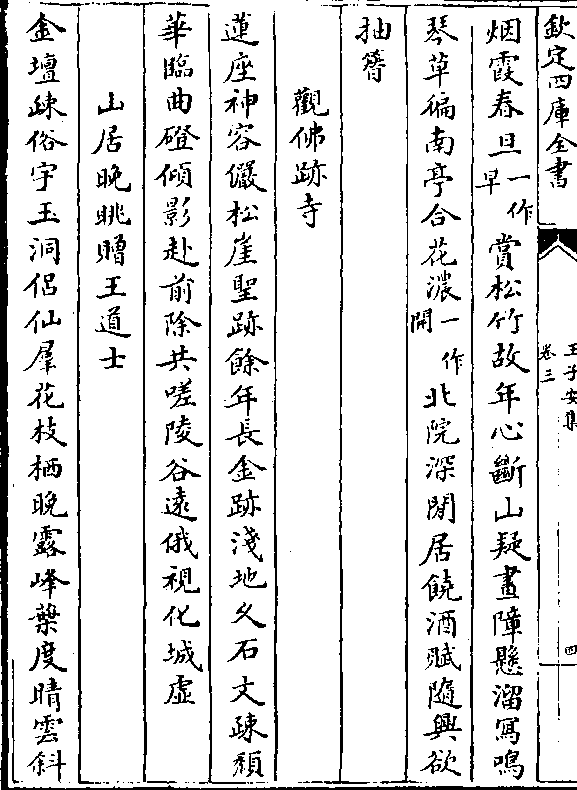 欽定四庫全書
王子安集
卷三
四
烟霞春旦一作早賞松竹故年心斷山疑畫障懸溜寫鳴
琴草徧南亭合花濃一作開北院深閒居饒酒賦隨興欲
抽簪
觀佛跡寺
蓮座神容儼松崖聖跡餘年長金跡淺地久石文疎頽
華臨曲磴傾影赴前除共嗟陵谷遠俄視化城虛
山居晚眺贈王道士
金壇疎俗宇玉洞侶仙羣花枝栖晚露峰葉度晴雲斜